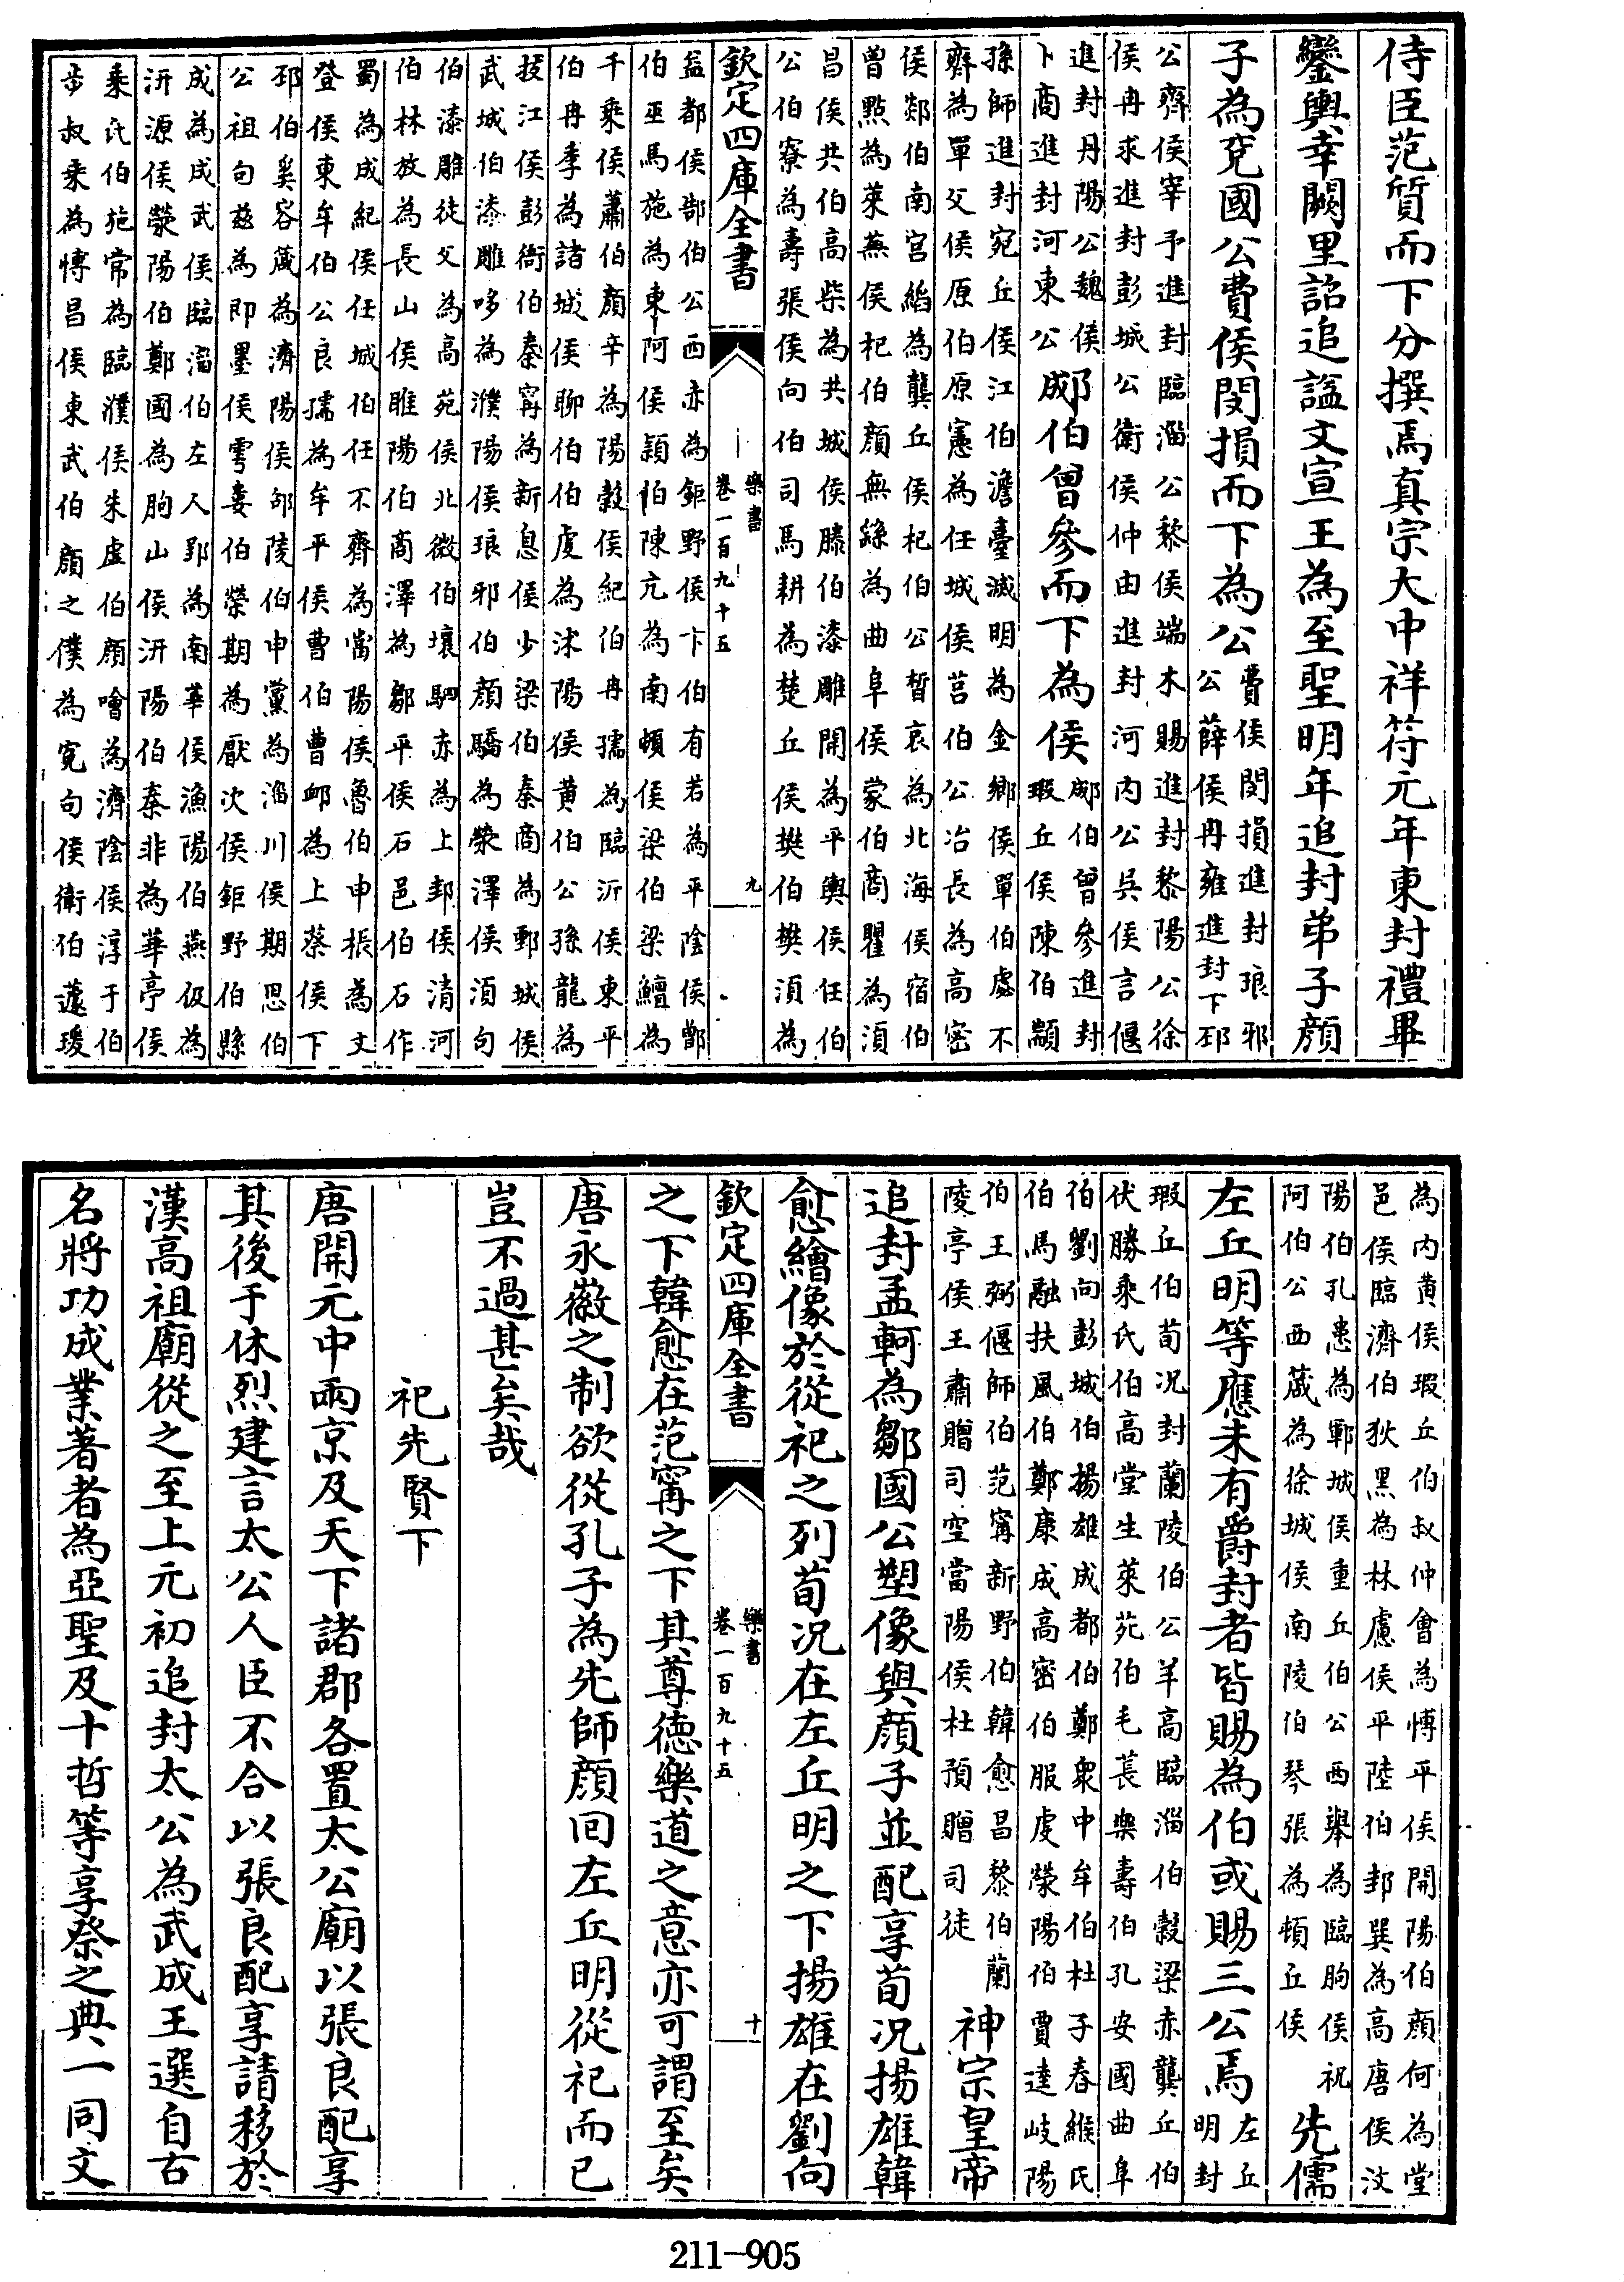 侍臣范質而下分撰焉真宗大中祥符元年東封禮畢
鑾輿幸闕里詔追諡文宣王為至聖明年追封弟子顏
子為兗國公費侯閔損而下為公費侯閔損進封琅邪
公薛侯冉雍進封下邳
公齊侯宰予進封臨淄公黎侯端木賜進封黎陽公徐
侯冉求進封彭城公衛侯仲由進封河內公吳侯言偃
進封丹陽公魏侯
卜商進封河東公
郕伯曾參而下為侯
郕伯曾參進封
瑕丘侯陳伯顓
孫師進封宛丘侯江伯澹臺滅明為金鄉侯單伯處不
齊為單父侯原伯原憲為任城侯莒伯公冶長為高密
侯郯伯南宮縚為龔丘侯杞伯公晳哀為北海侯宿伯
曾點為萊蕪侯杞伯顏無繇為曲阜侯蒙伯商瞿為須
昌侯共伯高柴為共城侯滕伯漆雕開為平輿侯任伯
公伯寮為壽張侯向伯司馬耕為楚丘侯樊伯樊須為
欽定四庫全書
樂書
卷一百九十五
九
益都侯郜伯公西赤為鉅野侯卞伯有若為平陰侯鄫
伯巫馬施為東阿侯潁伯陳亢為南頓侯梁伯梁鱣為
千乘侯蕭伯顏辛為陽穀侯紀伯冉孺為臨沂侯東平
伯冉季為諸城侯聊伯伯虔為沭陽侯黄伯公孫龍為
拔江侯彭衙伯秦甯為新息侯少梁伯秦商為鄄城侯
武城伯漆雕哆為濮陽侯琅邪伯顏驕為滎澤侯須句
伯漆雕徒父為高苑侯北徵伯壤駟赤為上邽侯清河
伯林放為長山侯睢陽伯商澤為鄒平侯石邑伯石作
蜀為成紀侯任城伯任不齊為當陽侯魯伯申棖為文
登侯東牟伯公良孺為牟平侯曹伯曹卹為上蔡侯下
邳伯奚容蒧為濟陽侯邵陵伯申黨為淄川侯期思伯
公祖句兹為即墨侯雩婁伯榮期為厭次侯鉅野伯縣
成為成武侯臨淄伯左人郢為南華侯漁陽伯燕伋為
汧源侯滎陽伯鄭國為朐山侯汧陽伯秦非為華亭侯
乘氏伯施常為臨濮侯朱虛伯顏噲為濟陰侯淳于伯
步叔乘為博昌侯東武伯顏之僕為寃句侯衛伯蘧瑗
為內黄侯瑕丘伯叔仲會為博平侯開陽伯顏何為堂
邑侯臨濟伯狄黑為林慮侯平陸伯邽巽為高唐侯汶
陽伯孔患為鄆城侯重丘伯公西舉為臨朐侯祝
阿伯公西蒧為徐城侯南陵伯琴張為頓丘侯
先儒
左丘明等應未有爵封者皆賜為伯或賜三公焉左丘
明封
瑕丘伯荀况封蘭陵伯公羊高臨淄伯穀梁赤龔丘伯
伏勝乘氏伯高堂生萊苑伯毛萇樂壽伯孔安國曲阜
伯劉向彭城伯揚雄成都伯鄭衆中牟伯杜子春緱氏
伯馬融扶風伯鄭康成高密伯服虔滎陽伯賈逵岐陽
伯王弼偃師伯范甯新野伯韓愈昌黎伯蘭
陵亭侯王肅贈司空當陽侯杜預贈司徒
神宗皇帝
追封孟軻為鄒國公塑像與顏子並配享荀况揚雄韓
愈繪像於從祀之列荀况在左丘明之下揚雄在劉向
欽定四庫全書
樂書
卷一百九十五
十
之下韓愈在范甯之下其尊德樂道之意亦可謂至矣
唐永徽之制欲從孔子為先師顏回左丘明從祀而已
豈不過甚矣哉
祀先賢下
唐開元中兩京及天下諸郡各置太公廟以張良配享
其後于休烈建言太公人臣不合以張良配享請移於
漢高祖廟從之至上元初追封太公為武成王選自古
名將功成業著者為亞聖及十哲等享祭之典一同文
211-905